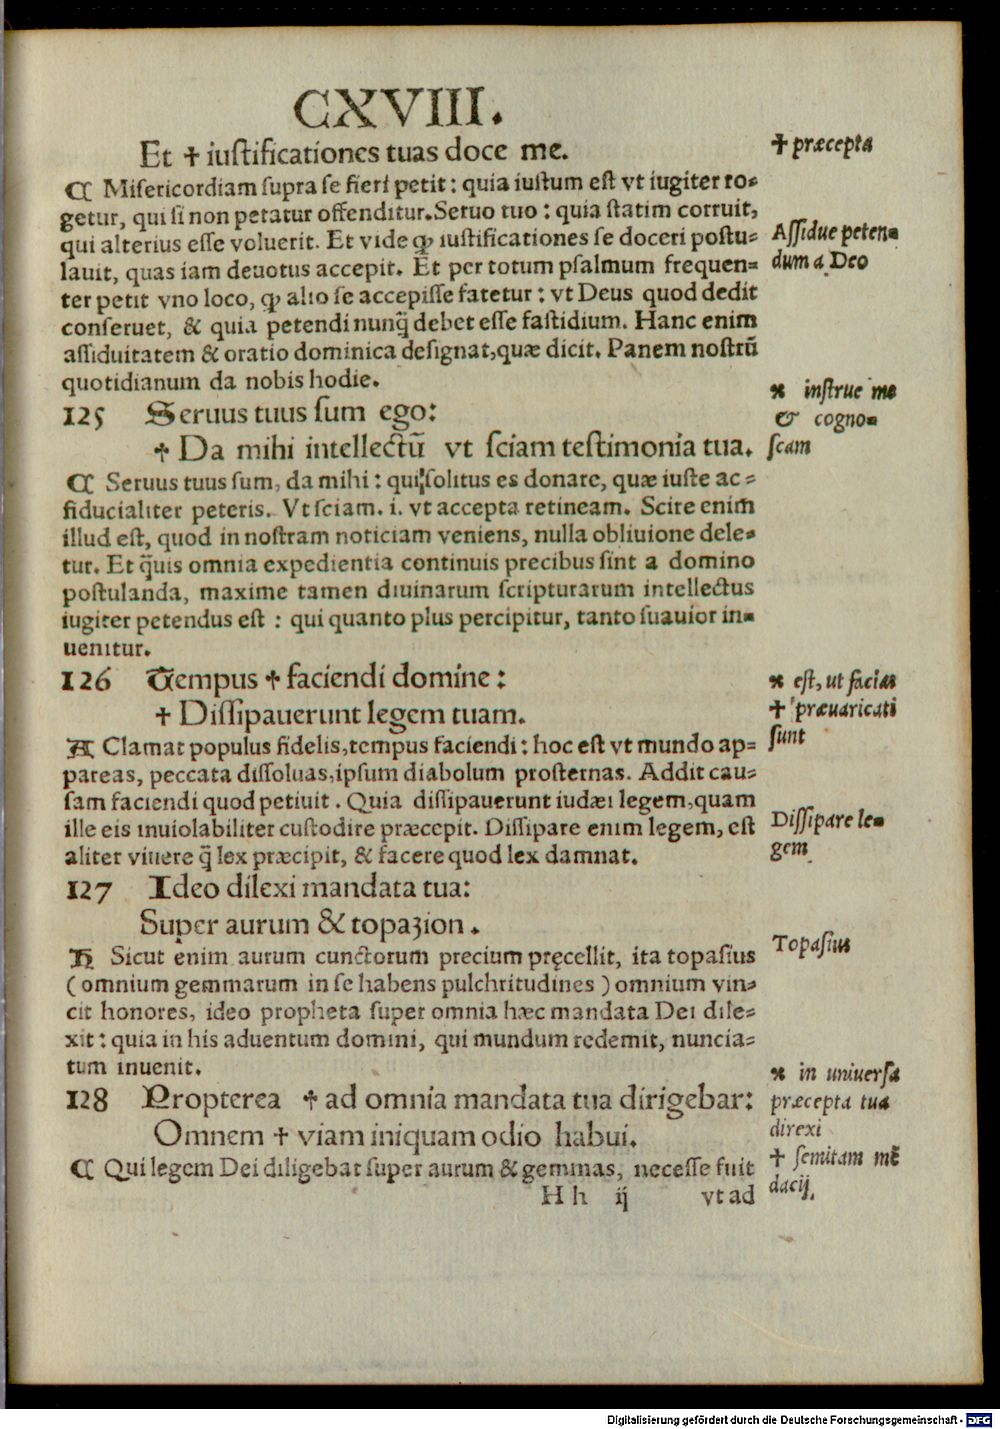 CXVIII.
Et ✝ iuſtificationes tuas doce me.
✝ præcepta
C Miſericordiam ſupra ſe fieri petit: quia iuſtum eſt vt iugiter ro-
getur, qui ſi non petatur offenditur. Seruo tuo: quia ſtatim corruit,
qui alterius eſſe voluerit. Et vide ꝙ iuſtificationes ſe doceri poſtu-
lauit, quas iam deuotus accepit. Et per totum pſalmum frequen-
ter petit vno loco, ꝙ alio ſe accepiſſe fatetur: vt Deus quod dedit
conſeruet, & quia petendi nunq̃ debet eſſe faſtidium. Hanc enim
aſſiduitatem & oratio dominica deſignat, quæ dicit. Panem noſtrũ
quotidianum da nobis hodie.
Aſſidue peten-
dum a Deo
125 Seruus tuus ſum ego:
✝ Da mihi intellectũ vt ſciam teſtimonia tua.
⁎ inſtrue me
& cogno-
ſcam
C Seruus tuus ſum, da mihi: qui ſolitus es donare, quæ iuſte ac
fiducialiter peteris. Vt ſciam. i. vt accepta retineam. Scire enim
illud eſt, quod in noſtram noticiam veniens, nulla obliuione dele-
tur. Et q̃uis omnia expedientia continuis precibus ſint a domino
poſtulanda, maxime tamen diuinarum ſcripturarum intellectus
iugiter petendus eſt: qui quanto plus percipitur, tanto ſuauior in-
uenitur.
126 Tempus ✝ faciendi domine:
✝ Diſſipauerunt legem tuam.
⁎ eſt, ut facias
✝ præuaricati
ſunt
A Clamat populus fidelis, tempus faciendi: hoc eſt vt mundo ap-
pareas, peccata diſſoluas, ipſum diabolum proſternas. Addit cau-
ſam faciendi quod petiuit. Quia diſſipauerunt iudæi legem, quam
ille eis inuiolabiliter cuſtodire præcepit. Diſſipare enim legem, eſt
aliter viuere q̃ lex præcipit, & facere quod lex damnat.
Diſſipare le-
gem
127 Ideo dilexi mandata tua:
Super aurum & topazion.
H Sicut enim aurum cunctorum precium pręcellit, ita topaſius
(omnium gemmarum in ſe habens pulchritudines) omnium vin-
cit honores, ideo propheta ſuper omnia hæc mandata Dei dile-
xit: quia in his aduentum domini, qui mundum redemit, nuncia-
tum inuenit.
Topaſius
128 Propterea ✝ ad omnia mandata tua dirigebar:
Omnem ✝ viam iniquam odio habui.
⁎ in uniuerſa
præcepta tua
direxi
✝ ſemitam mẽ
dacij.
C Qui legem Dei diligebat ſuper aurum & gemmas, neceſſe fuit
H h ij vt ad
Digitalisierung gefördert durch die Deutsche Forschungsgemeinschaft - DFG